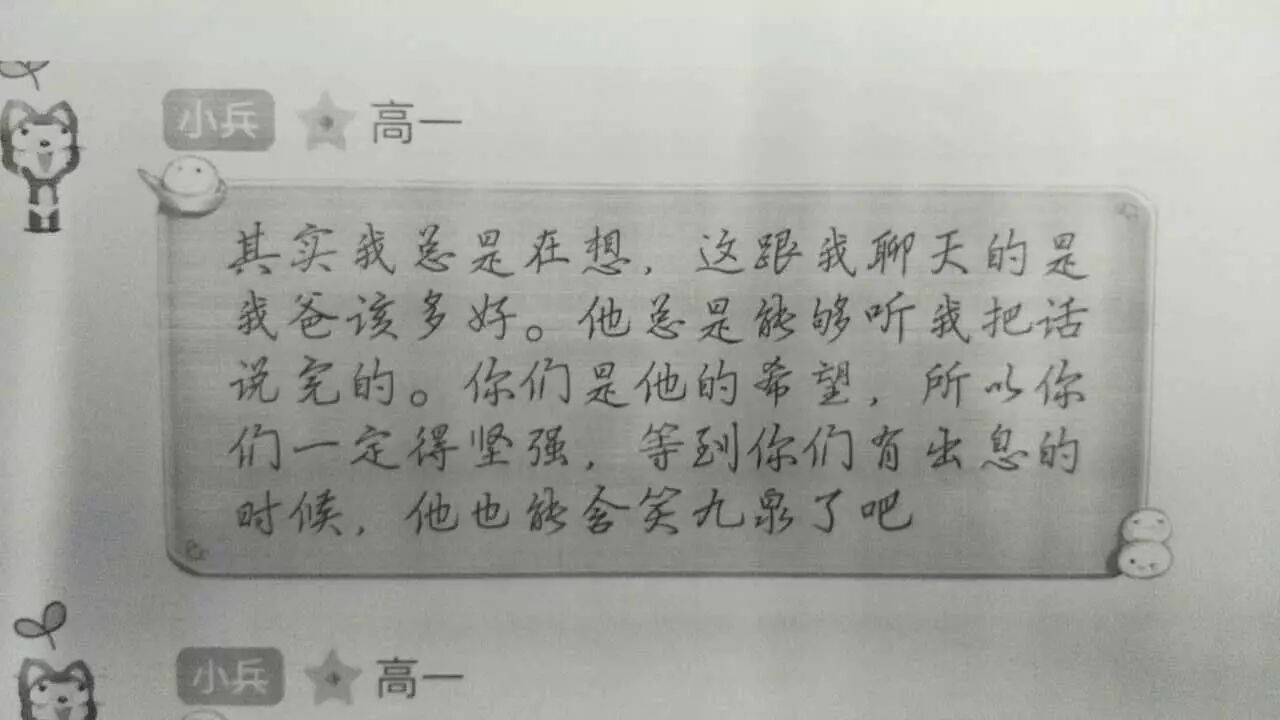 小兵 高一
其实我总是在想，这跟我聊天的是
我爸该多好。他总是能够听我把话
说完的。你们是他的希望，所以你
们一定得坚强，等到你们有出息的
时候，他也能含笑九泉了吧
小兵 高一